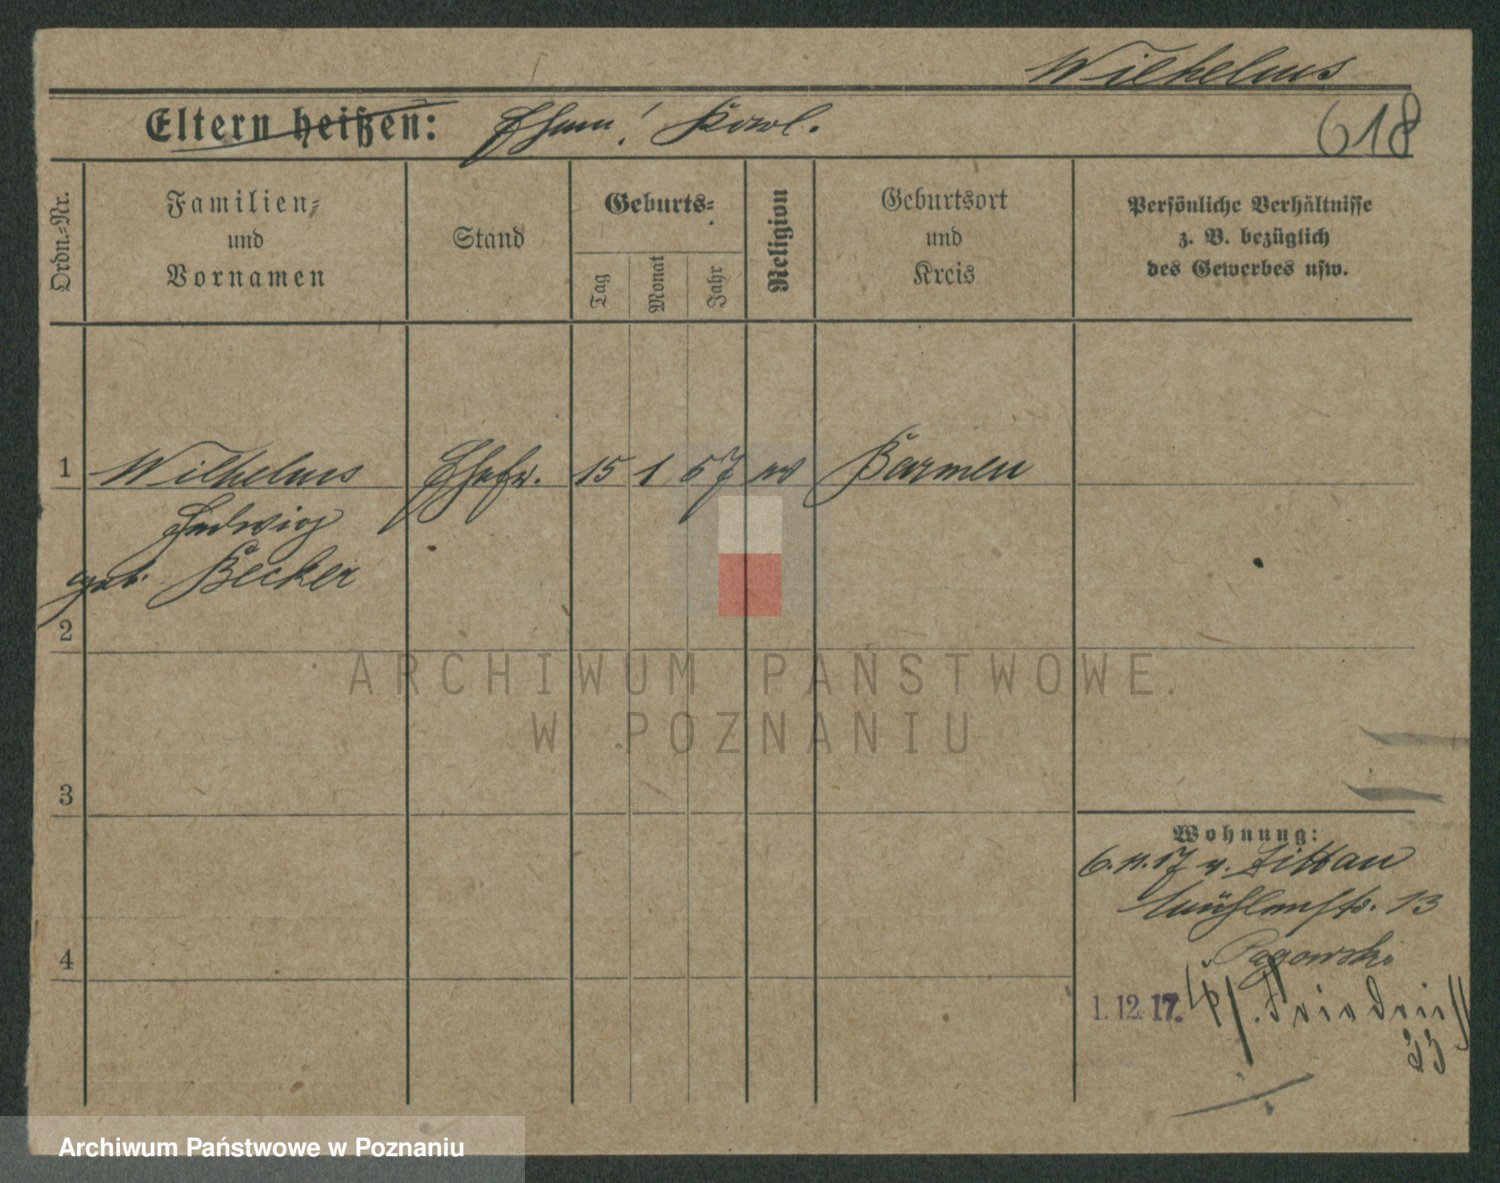 Wilhelms
Eltern heißen: Ehem! Karl.
618
Ordn.-Nr.
Familien-
und
Vornamen
Stand
Geburts-
Tag
Monat
Jahr
Religion
Geburtsort
und
Kreis
Persönliche Verhältnisse
z. B. bezüglich
des Gewerbes usw.
1 Wilhelms Ehefr. 15 1 67 ev Barmen
Hedwig
geb. Becker
2
ARCHIWUM PAŃSTWOWE
W POZNANIU
3
Wohnung:
6.11.17 v. Zittau
Mühlenstr. 13
Pagowski
4
1.12.17. Friedrich
33
Archiwum Państwowe w Poznaniu